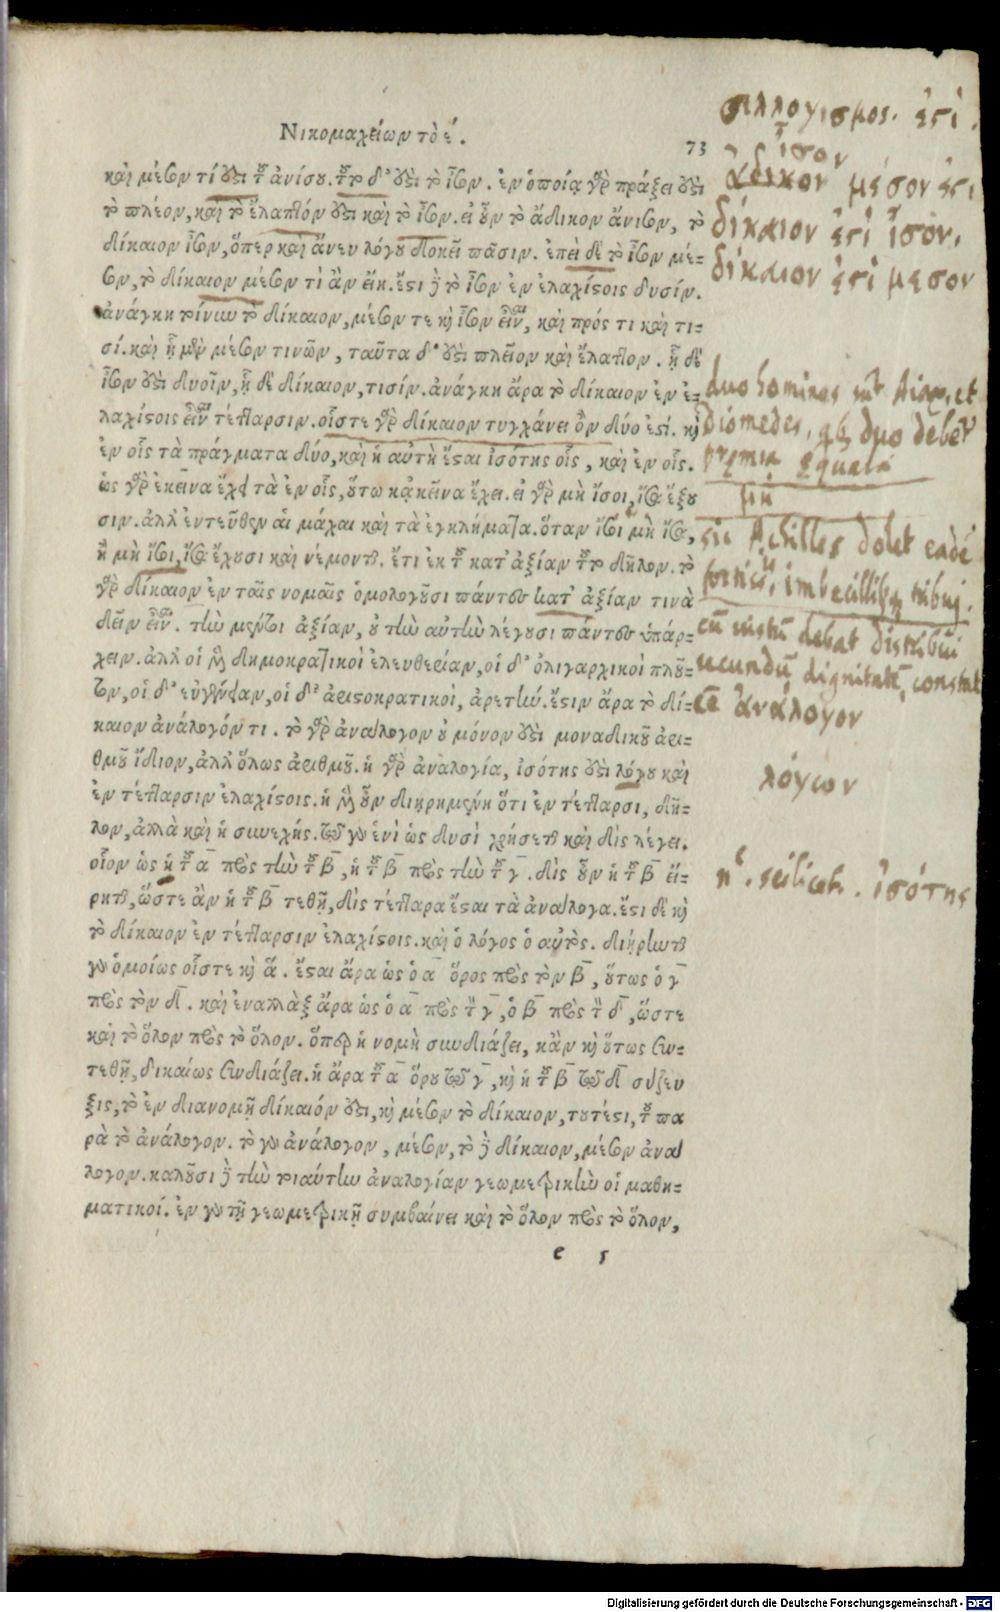 Νικομαχείων τὸ έ.
73
καὶ μέσον τί ὅξι τ̃ ἀνίσου. τ̃το δ' ὅξι τὸ ἴσον. ἐν ὁποίᾳ γὰρ πράξει ὅξι
τὸ πλέον, καὶ τὸ ἔλαττόν ὅξι καὶ τὸ ἴσον. εἰ οὖν τὸ ἄδικον ἄνισον, τὸ
δίκαιον ἴσον, ὅπερ καὶ ἄνευ λόγου δοκεῖ πᾶσιν. ἐπεὶ δὲ τὸ ἴσον μέ=
σον, τὸ δίκαιον μέσον τὶ ἂν εἴη. ἔστι δὲ τὸ ἴσον ἐν ἐλαχίστοις δυσίν.
ἀνάγκη τοίνυν τὸ δίκαιον, μέσον τε κὶ ἴσον εἶναι, καὶ πρός τι καὶ τι=
σί. καὶ ᾗ μὲν μέσον τινῶν, ταῦτα δ' ὅξι πλεῖον καὶ ἔλαττον. ᾗ δὲ
ἴσον ὅξι δυοῖν, ᾗ δὲ δίκαιον, τισίν. ἀνάγκη ἄρα τὸ δίκαιον ἐν ἐ=
λαχίστοις εἶναι τέτταρσιν. οἷστε γὰρ δίκαιον τυγχάνει ὂν δύο ἐστί. κὶ
ἐν οἷς τὰ πράγματα δύο, καὶ ἡ αὐτὴ ἔσται ἰσότης οἷς, καὶ ἐν οἷς.
ὡς γὰρ ἐκεῖνα ἔχει τὰ ἐν οἷς, οὕτω κᾀκεῖνα ἔχει. εἰ γὰρ μὴ ἴσοι, ἴσα ἕξου
σιν. ἀλλ' ἐντεῦθεν αἱ μάχαι καὶ τὰ ἐγκλήματα. ὅταν ἴσοι μὴ ἴσα,
ἢ μὴ ἴσοι, ἴσα ἔχουσι καὶ νέμονται. ἔτι ἐκ τ̃ κατ' ἀξίαν τ̃το δῆλον. τὸ
γὰρ δίκαιον ἐν ταῖς νομαῖς ὁμολογοῦσι πάντες κατ' ἀξίαν τινὰ
δεῖν εἶναι. τὴν μέντοι ἀξίαν, οὐ τὴν αὐτὴν λέγουσι πάντες ὑπάρ=
χειν. ἀλλ' οἱ μὲν δημοκρατικοὶ ἐλευθερίαν, οἱ δ' ὀλιγαρχικοὶ πλοῦ=
τον, οἱ δ' εὐγένειαν, οἱ δ' ἀριστοκρατικοὶ, ἀρετήν. ἔστιν ἄρα τὸ δί=
καιον ἀνάλογόν τι. τὸ γὰρ ἀνάλογον οὐ μόνον ὅξι μοναδικοῦ ἀρι=
θμοῦ ἴδιον, ἀλλ' ὅλως ἀριθμοῦ. ἡ γὰρ ἀναλογία, ἰσότης ὅξι λόγου καὶ
ἐν τέτταρσιν ἐλαχίστοις. ἡ μὲν οὖν διῃρημένη ὅτι ἐν τέτταρσι, δῆ=
λον, ἀλλὰ καὶ ἡ συνεχής. τῷ γὰρ ἑνὶ ὡς δυσὶ χρήσεται καὶ δὶς λέγει.
οἷον ὡς ἡ τ̃ α̅ πρὸς τὴν τ̃ β̅, ἡ τ̃ β̅ πρὸς τὴν τ̃ γ̅. δὶς οὖν ἡ τ̃ β̅ εἴ=
ρηται, ὥστε ἂν ἡ τ̃ β̅ τεθῇ, δὶς τέτταρα ἔσται τὰ ἀνάλογα. ἔστι δὲ κὶ
τὸ δίκαιον ἐν τέτταρσιν ἐλαχίστοις. καὶ ὁ λόγος ὁ αὐτὸς. διῄρηνται
γὰρ ὁμοίως οἷστε κὶ ἅ. ἔσται ἄρα ὡς ὁ α̅ ὅρος πρὸς τὸν β̅, οὕτως ὁ γ̅
πρὸς τὸν δ̅. καὶ ἐναλλὰξ ἄρα ὡς ὁ α̅ πρὸς τὸν γ̅, ὁ β̅ πρὸς τὸν δ̅, ὥστε
καὶ τὸ ὅλον πρὸς τὸ ὅλον. ὅπερ ἡ νομὴ συνδιάζει, κἂν κὶ οὕτως συν=
τεθῇ, δικαίως συνδιάζει. ἡ ἄρα τ̃ α̅ ὅρου τῷ γ̅, κὶ ἡ τ̃ β̅ τῷ δ̅ σύζευ
ξις, τὸ ἐν διανομῇ δίκαιόν ὅξι, κὶ μέσον τὸ δίκαιον, τουτέστι, τ̃ πα
ρὰ τὸ ἀνάλογον. τὸ γὰρ ἀνάλογον, μέσον, τὸ δὲ δίκαιον, μέσον ἀνά
λογον. καλοῦσι δὲ τὴν τοιαύτην ἀναλογίαν γεωμετρικὴν οἱ μαθη=
ματικοί. ἐν γὰρ τῇ γεωμετρικῇ συμβαίνει καὶ τὸ ὅλον πρὸς τὸ ὅλον,
e 5
σιλλογισμος. ἐστὶ
ἴσον
ἄδικον μέσον ἐστι
δίκαιον ἐστὶ ἴσον.
δίκαιον ἐστὶ μεσον
duo homines sūt Aiax, et
Diomedes, qb9 duo debēt
premia equalia
μὴ
sic Achilles dolet eadē
fortiorib9, imbecillib9 tribui.
cū iustū debat distribui
secundū dignitatē, constat
eē ἀνάλογον
λόγων
ἡ. scilicet. ἰσότης
Digitalisierung gefördert durch die Deutsche Forschungsgemeinschaft - DFG